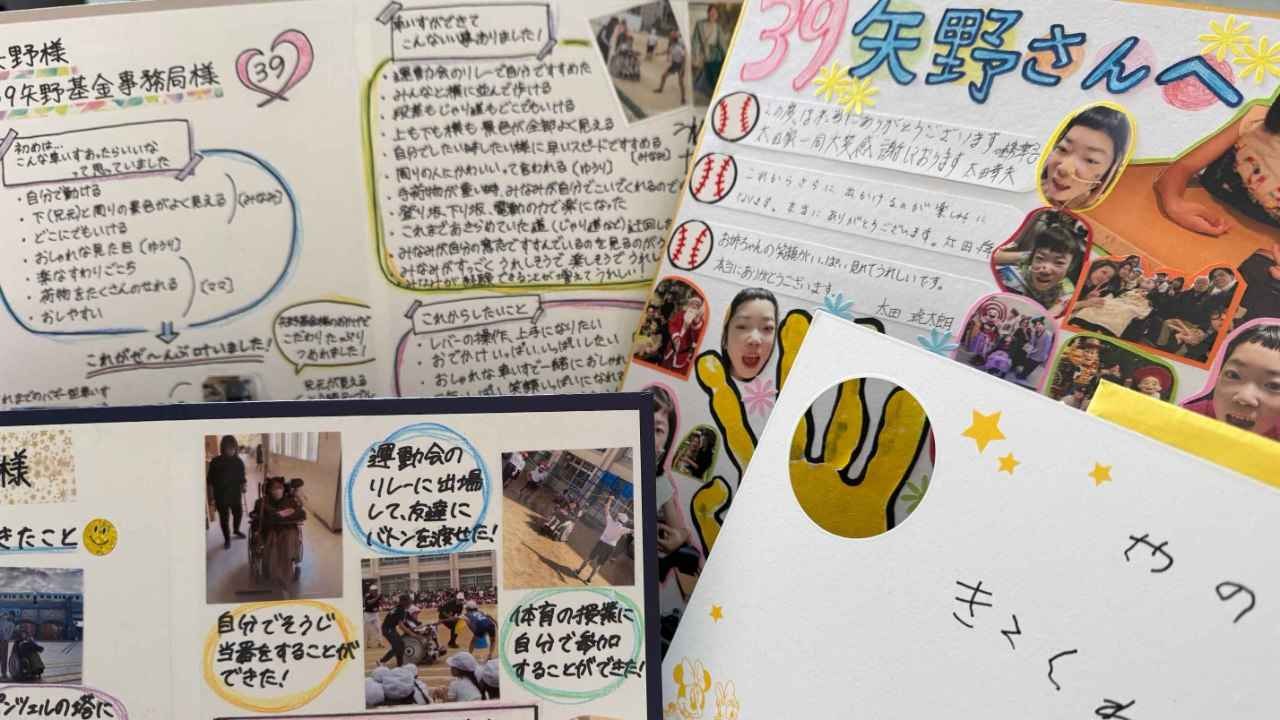 矢野様
39矢野基金事務局様
39
初めは…
こんな車いすあったらいいな
って思っていました
・自分で動ける
・下(足元)と周りの景色がよく見える
(みなみ)
・どこにでもいける
・おしゃれな見た目(ゆうり)
・楽なすわりごこち
・荷物をたくさんのせれる
(ママ)
・おしやすい
これがぜ〜んぶ叶いました!
こだわりたっぷり
つめれました!
車いすができて
こんないい事ありました!
・運動会のリレーで自分ですすめた
・みんなと横に並んで歩ける
・段差もじゃり道もどこでもいける
・上も下も横も景色が全部よく見える
・自分でしたい時したい様に早いスピードですすめる
(みなみ)
・周りの人にかわいいって言われる(ゆうり)
・手荷物が重い時、みなみが自分でこいでくれるので
・登り坂、下り坂、電動の力で楽になった
・これまであきらめていた道(じゃり道など)迂回し
・みなみが自分の意志ですすんでいるのを見るのが
・みなみがすっごくうれしそうで楽しそうでうれし
これからしたいこと
・レバーの操作、上手になりたい
・おでかけいっぱいいっぱいしたい
・おしゃれな車いすで一緒におしゃれ
39矢野さんへ
この度は本当にありがとうございます。
太田家一同大変感謝しております
これからさらに出かけるのが楽しみに
なります。本当にありがとうございます。
お姉ちゃんの笑顔がいっぱい見れてうれしいです。
本当にありがとうございます。
様
きたこと
運動会の
リレーに出場
して、友達に
バトンを渡せた!
自分でそうじ
当番をすることが
できた!
体育の授業に
自分で参加
することができた!
ンツェルの塔に
やの
ききくん